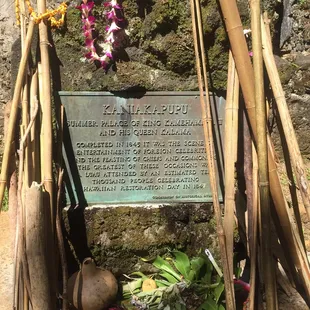 KANIAKAPUPU
SUMMER PALACE OF KING KAMEHAMEHA
AND HIS QUEEN KALAMA
COMPLETED IN 1845 IT WAS THE SCENE
ENTERTAINMENT OF FOREIGN CELEBR
AND THE FEASTING OF CHIEFS AND COMMON
THE GREATEST OF THESE OCCASIONS WA
LUAU ATTENDED BY AN ESTIMATED TE
THOUSAND PEOPLE CELEBRATING
HAWAIIAN RESTORATION DAY IN 184